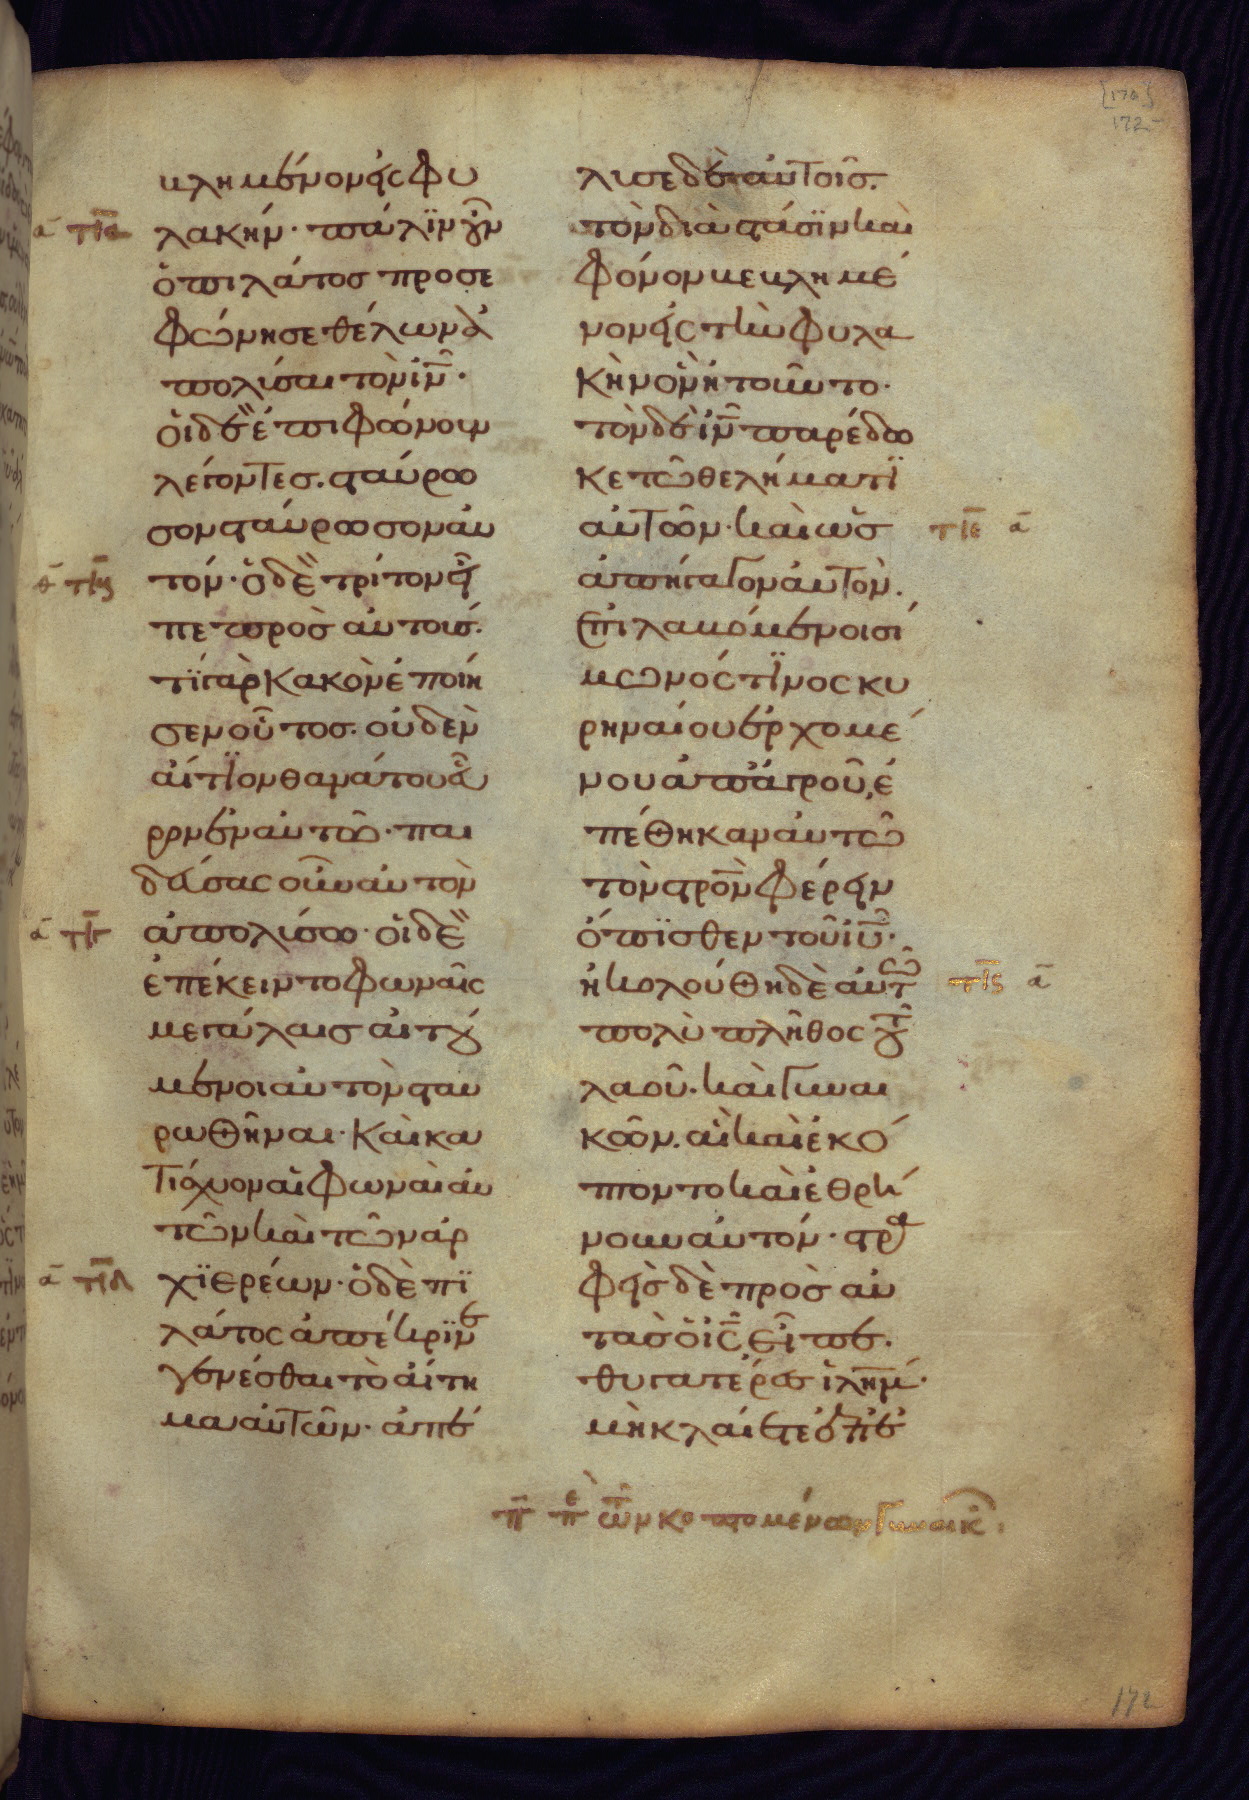 [170]
172
κλημένον εἰς φυ
ᾱ τῑα λακήν· πάλϊν οὖν
ὁ πιλάτος προσε
φώνησε θέλων ἀ
πολύσαι τὸν ἰν̅·
οἱ δὲ ἐπιφώνουν
λέγοντες. σταύρω
σον σταύρωσον αὐ
θ̅ τῑβ τόν· ὁ δὲ τρίτον εἶ
πε πρὸς αὐτούς.
τΐ γὰρ κακὸν ἐποίη
σεν οὗτος. οὐδὲν
αἴτϊον θανάτου εὗ
ρον ἐν αὐτῶ· παι
δεύσας οὖν αὐτὸν
ᾱ τῑγ ἀπολύσω· οἱ δὲ
ἐπέκειντο φωναῖς
μεγάλαις αἰτού
μενοι αὐτὸν σταυ
ρωθῆναι· καὶ κα
τίσχυον αἱ φωναὶ αὐ
τῶν καὶ τῶν ἀρ
ᾱ τῑδ χϊερέων· ὁ δὲ πϊ
λάτος ἀπέκρϊνε
γενέσθαι τὸ αἴτη
μα αὐτῶν· ἀπέ
λυσε δὲ αὐτοῖς.
τὸν διὰ στάσϊν καὶ
φόνον κεκλημέ
νον εἰς τὴν φυλα
κὴν ὃν ἠτοῦντο·
τὸν δὲ ἰν̅ παρέδω
κε τῶ θελήματϊ
αὐτῶν· καὶ ὡς τῑε ᾱ
ἀπήγαγον αὐτὸν.
ἐπιλαμβόμενοι σί
μωνός τϊνος κυ
ρηναίου ἐρχομέ
νου ἀπ' ἀγροῦ, ἐ
πέθηκαν αὐτῶ
τὸν στρο̅ν φέρειν
ὄπϊσθεν τοῦ ἰυ̅·
ἠκολούθη δὲ αὐτῶ τῑϛ ᾱ
πολὺ πλῆθος τοῦ
λαοῦ· καὶ γυναι
κῶν. αἳ καὶ ἐκό
πτοντο καὶ ἐθρή
νουν αὐτόν· στρα
φεὶς δὲ πρὸς αὐ
τὰς ὁ ἰς̅ εἶπε.
θυγατέρες ἰλη̅μ·
μὴ κλαίετε ἐπ' ἐ
π̅ π̅ε̅ τῶν κοπτομένων γυναικῶν
172